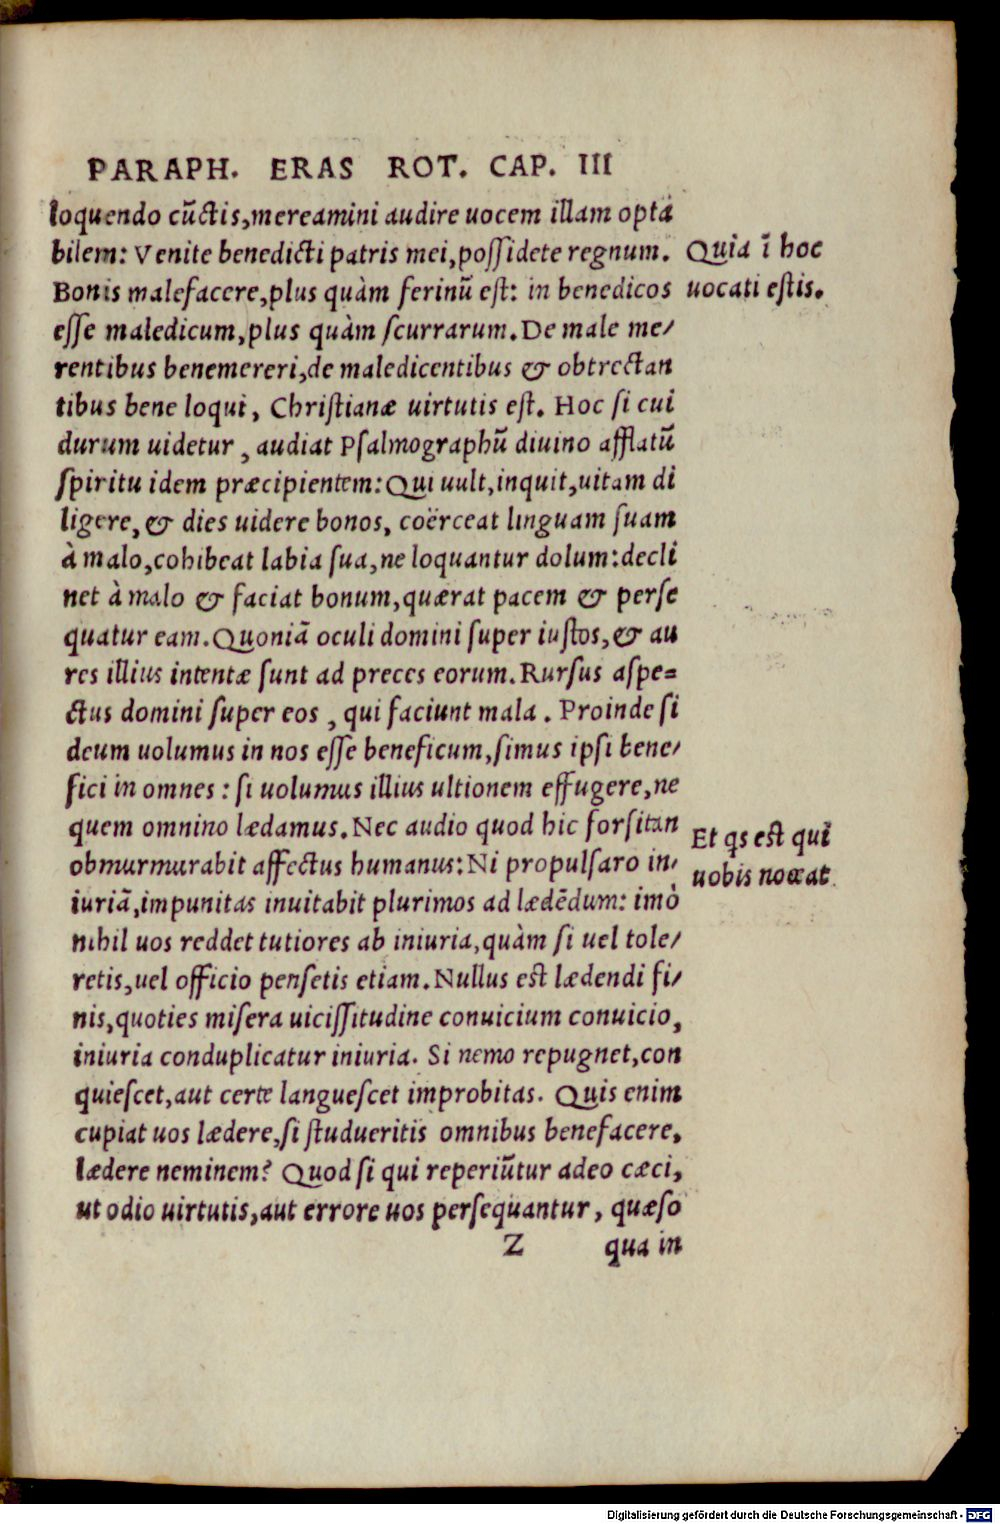 PARAPH. ERAS ROT. CAP. III
loquendo cūctis, mereamini audire uocem illam opta
bilem: Venite benedicti patris mei, possidete regnum.
Quia ī hoc
Bonis malefacere, plus quàm ferinū est: in benedicos
uocati estis.
esse maledicum, plus quàm scurrarum. De male me/
rentibus benemereri, de maledicentibus & obtrectan
tibus bene loqui, Christianæ uirtutis est. Hoc si cui
durum uidetur, audiat Psalmographū diuino afflatū
spiritu idem præcipientem: Qui uult, inquit, uitam di
ligere, & dies uidere bonos, coërceat linguam suam
à malo, cohibeat labia sua, ne loquantur dolum: decli
net à malo & faciat bonum, quærat pacem & perse
quatur eam. Quoniā oculi domini super iustos, & au
res illius intentæ sunt ad preces eorum. Rursus aspe=
ctus domini super eos, qui faciunt mala. Proinde si
deum uolumus in nos esse beneficum, simus ipsi bene/
fici in omnes: si uolumus illius ultionem effugere, ne
quem omnino lædamus. Nec audio quod hic forsitan
Et qs est qui
obmurmurabit affectus humanus: Ni propulsaro in/
uobis noceat.
iuriā, impunitas inuitabit plurimos ad lædēdum: imò
nihil uos reddet tutiores ab iniuria, quàm si uel tole/
retis, uel officio pensetis etiam. Nullus est lædendi fi/
nis, quoties misera uicissitudine conuicium conuicio,
iniuria conduplicatur iniuria. Si nemo repugnet, con
quiescet, aut certe languescet improbitas. Quis enim
cupiat uos lædere, si studueritis omnibus benefacere,
lædere neminem? Quod si qui reperiūtur adeo cæci,
ut odio uirtutis, aut errore uos persequantur, quæso
Z qua in
Digitalisierung gefördert durch die Deutsche Forschungsgemeinschaft - DFG